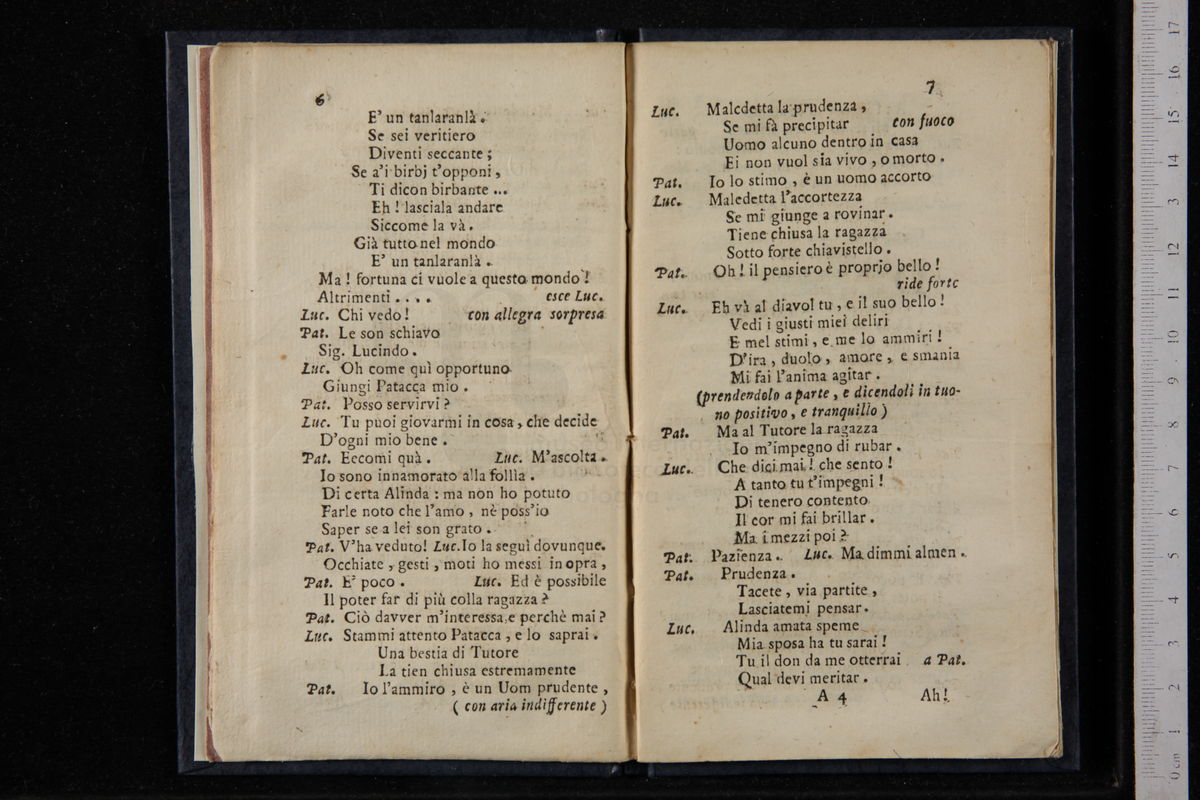 6
E' un tanlaranlà.
Se sei veritiero
Diventi seccante;
Se a'i birbj t'opponi,
Ti dicon birbante...
Eh! lasciala andare
Siccome la và.
Già tutto nel mondo
E' un tanlaranlà.
Ma! fortuna ci vuole a questo mondo!
Altrimenti.... esce Luc.
Luc. Chi vedo! con allegra sorpresa
Pat. Le son schiavo
Sig. Lucindo.
Luc. Oh come quì opportuno
Giungi Patacca mio.
Pat. Posso servirvi?
Luc. Tu puoi giovarmi in cosa, che decide
D'ogni mio bene.
Pat. Eccomi quà. Luc. M'ascolta.
Io sono innamorato alla follìa.
Di certa Alinda: ma non ho potuto
Farle noto che l'amo, nè poss'io
Saper se a lei son grato.
Pat. V'ha veduto! Luc. Io la seguì dovunque.
Occhiate, gesti, moti ho messi in opra,
Pat. E' poco. Luc. Ed è possibile
Il poter far di più colla ragazza?
Pat. Ciò davver m'interessa, e perchè mai?
Luc. Stammi attento Patacca, e lo saprai.
Una bestia di Tutore
La tien chiusa estremamente
Pat. Io l'ammiro, è un Uom prudente,
(con aria indifferente)
7
Luc. Maledetta la prudenza,
Se mi fà precipitar con fuoco
Uomo alcuno dentro in casa
Ei non vuol sia vivo, o morto.
Pat. Io lo stimo, è un uomo accorto
Luc. Maledetta l'accortezza
Se mi giunge a rovinar.
Tiene chiusa la ragazza
Sotto forte chiavistello.
Pat. Oh! il pensiero è proprjo bello!
ride forte
Luc. Eh và al diavol tu, e il suo bello!
Vedi i giusti miei deliri
E mel stimi, e me lo ammiri!
D'ira, duolo, amore, e smania
Mi fai l'anima agitar.
(prendendolo a parte, e dicendoli in tuo-
no positivo, e tranquillo)
Pat. Ma al Tutore la ragazza
Io m'impegno di rubar.
Luc. Che dici mai! che sento!
A tanto tu t'impegni!
Di tenero contento
Il cor mi fai brillar.
Ma i mezzi poi?
Pat. Pazienza. Luc. Ma dimmi almen.
Pat. Prudenza.
Tacete, via partite,
Lasciatemi pensar.
Luc. Alinda amata speme
Mia sposa ha tu sarai!
Tu il don da me otterrai a Pat.
Qual devi meritar.
A 4 Ah!